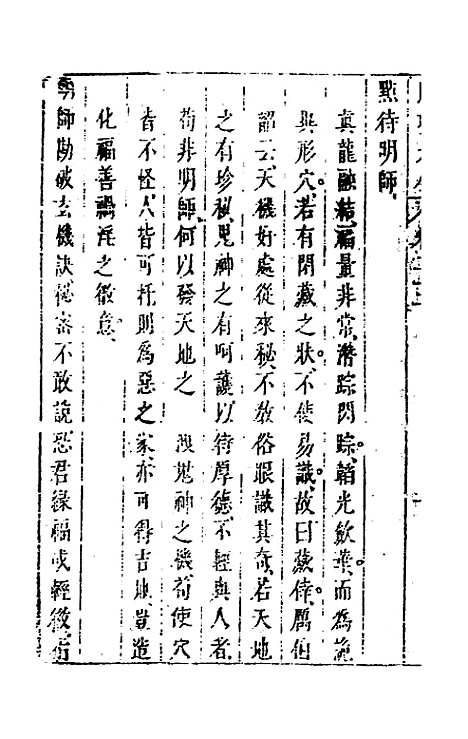 點待明師
真龍融結福量非常潛踪閃踪韜光歛華而為詭
異形穴若有閉藏之狀不使易識故曰藏倖厲伯
韶云天機好處從來秘不教俗眼識其奇若天地
之有珍秘鬼神之有呵護以待厚德不輕與人者
苟非明師何以發天地之 洩鬼神之機苟使穴
皆不怪人皆可扦則為惡之家亦可得吉地豈造
化福善禍淫之微意
明師勘破玄機訣秘密不敢說恐君緣福或輕微